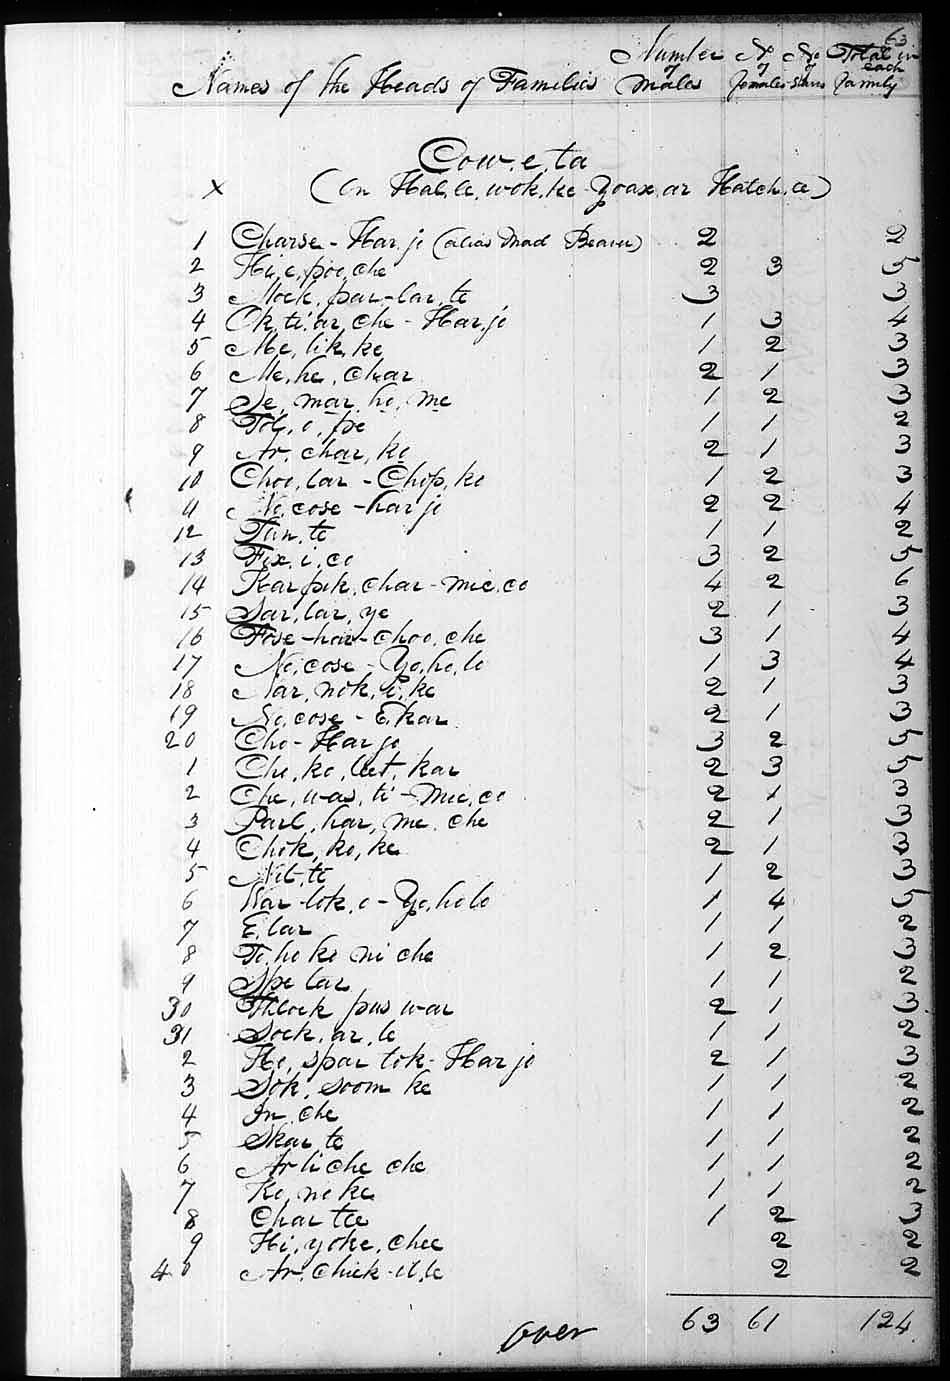 63
Number No No Total in
of of of each
Names of the Heads of Families Males females Slaves family
Cow.e,ta
x (On Hal.le,wok,ke-Yoax,ar Hatch.ee)
1 Charse-Har.jo (alias Mad Beaver) 2 2
2 Hi,e,poo,che 2 3 5
3 Mock,par-lar,te 3 3
4 Ok,ti,ar,che-Har.jo 1 3 4
5 Me,lik,ke 1 2 3
6 Me,he,char 2 1 3
7 Se,mar,ho,me 1 2 3
8 Tol,o,pe 1 1 2
9 Ar,char,ko 2 1 3
10 Choo,lar-Chop,ko 1 2 3
11 No,cose-harjo 2 2 4
12 Tun,te 1 1 2
13 Fix,i,co 3 2 5
14 Kar pik,char-mic,co 4 2 6
15 Sar,lar,ye 2 1 3
16 Fose-har-choo,che 3 1 4
17 No,cose-Yo,ho,lo 1 3 4
18 Nar,nok,i,ke 2 1 3
19 No,cose-E,kar 2 1 3
20 Cho-Harjo 3 2 5
1 Che,ko,let,kar 2 3 5
2 Che,was,ti-Mic,co 2 1 3
3 Parl,har,me,che 2 1 3
4 Chok,ko,ke 2 1 3
5 Nit,te 1 2 3
6 War-lok,o-Yo,holo 1 4 5
7 E,lar 1 1 2
8 To,ho ko ni che 1 2 3
9 Spe lar 1 1 2
30 Thlock pus war 2 1 3
31 Sock,ar,le 1 1 2
2 Ho,spar tok-Harjo 2 1 3
3 Sok,soom ke 1 1 2
4 In,che 1 1 2
5 Skar te 1 1 2
6 Ar li che che 1 1 2
7 Ko,no ke 1 1 2
8 Char tee 1 2 3
9 Hi,yoke,chee 2 2
40 Ar,chick-il,le 2 2
over 63 61 124